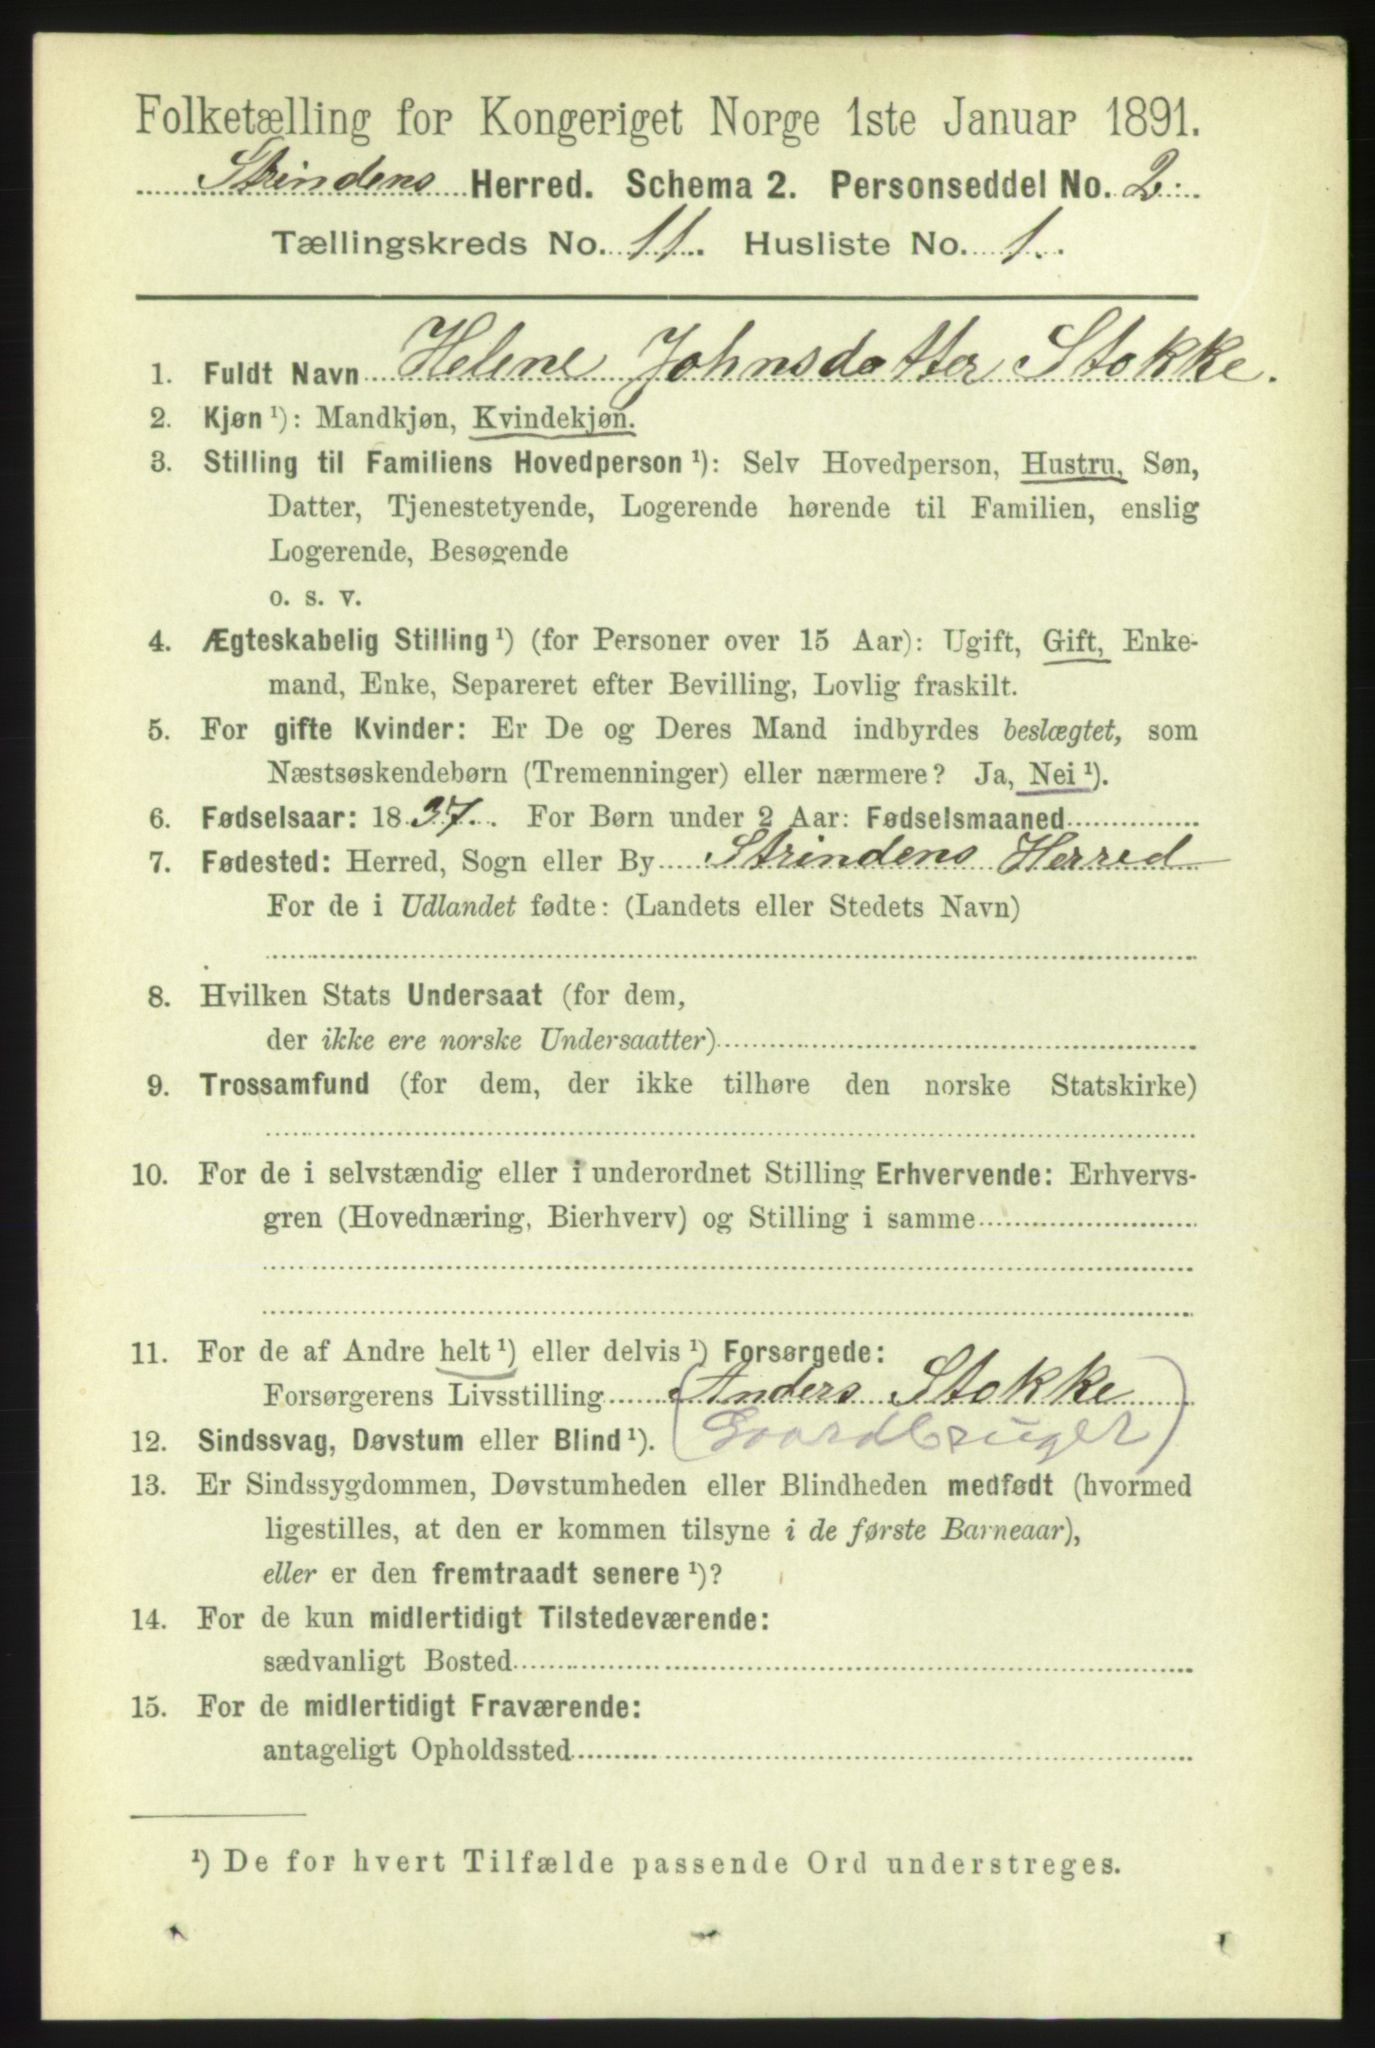 Folketælling for Kongeriget Norge 1ste Januar 1891.
Strindens Herred. Schema 2. Personseddel No. 2.
Tællingskreds No. 11. Husliste No. 1.
1. Fuldt Navn Helene Johnsdatter Stokke.
2. Kjøn ¹): Mandkjøn, Kvindekjøn.
3. Stilling til Familiens Hovedperson ¹): Selv Hovedperson, Hustru, Søn,
Datter, Tjenestetyende, Logerende hørende til Familien, enslig
Logerende, Besøgende
o. s. v.
4. Ægteskabelig Stilling ¹) (for Personer over 15 Aar): Ugift, Gift, Enke-
mand, Enke, Separeret efter Bevilling, Lovlig fraskilt.
5. For gifte Kvinder: Er De og Deres Mand indbyrdes beslægtet, som
Næstsøskendebørn (Tremenninger) eller nærmere? Ja, Nei ¹).
6. Fødselsaar: 1837. For Børn under 2 Aar: Fødselsmaaned
7. Fødested: Herred, Sogn eller By Strindens Herred
For de i Udlandet fødte: (Landets eller Stedets Navn)
8. Hvilken Stats Undersaat (for dem,
der ikke ere norske Undersaatter)
9. Trossamfund (for dem, der ikke tilhøre den norske Statskirke)
10. For de i selvstændig eller i underordnet Stilling Erhvervende: Erhvervs-
gren (Hovednæring, Bierhverv) og Stilling i samme
11. For de af Andre helt ¹) eller delvis ¹) Forsørgede:
Forsørgerens Livsstilling (Anders Stokke
12. Sindssvag, Døvstum eller Blind ¹). Gaardbruger)
13. Er Sindssygdommen, Døvstumheden eller Blindheden medfødt (hvormed
ligestilles, at den er kommen tilsyne i de første Barneaar),
eller er den fremtraadt senere ¹)?
14. For de kun midlertidigt Tilstedeværende:
sædvanligt Bosted
15. For de midlertidigt Fraværende:
antageligt Opholdssted
¹) De for hvert Tilfælde passende Ord understreges.